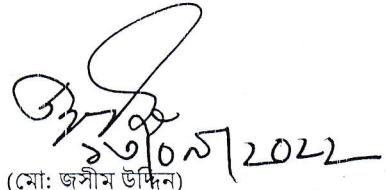 ১৩/০৯/2022
(মো: জসীম উদ্দিন)